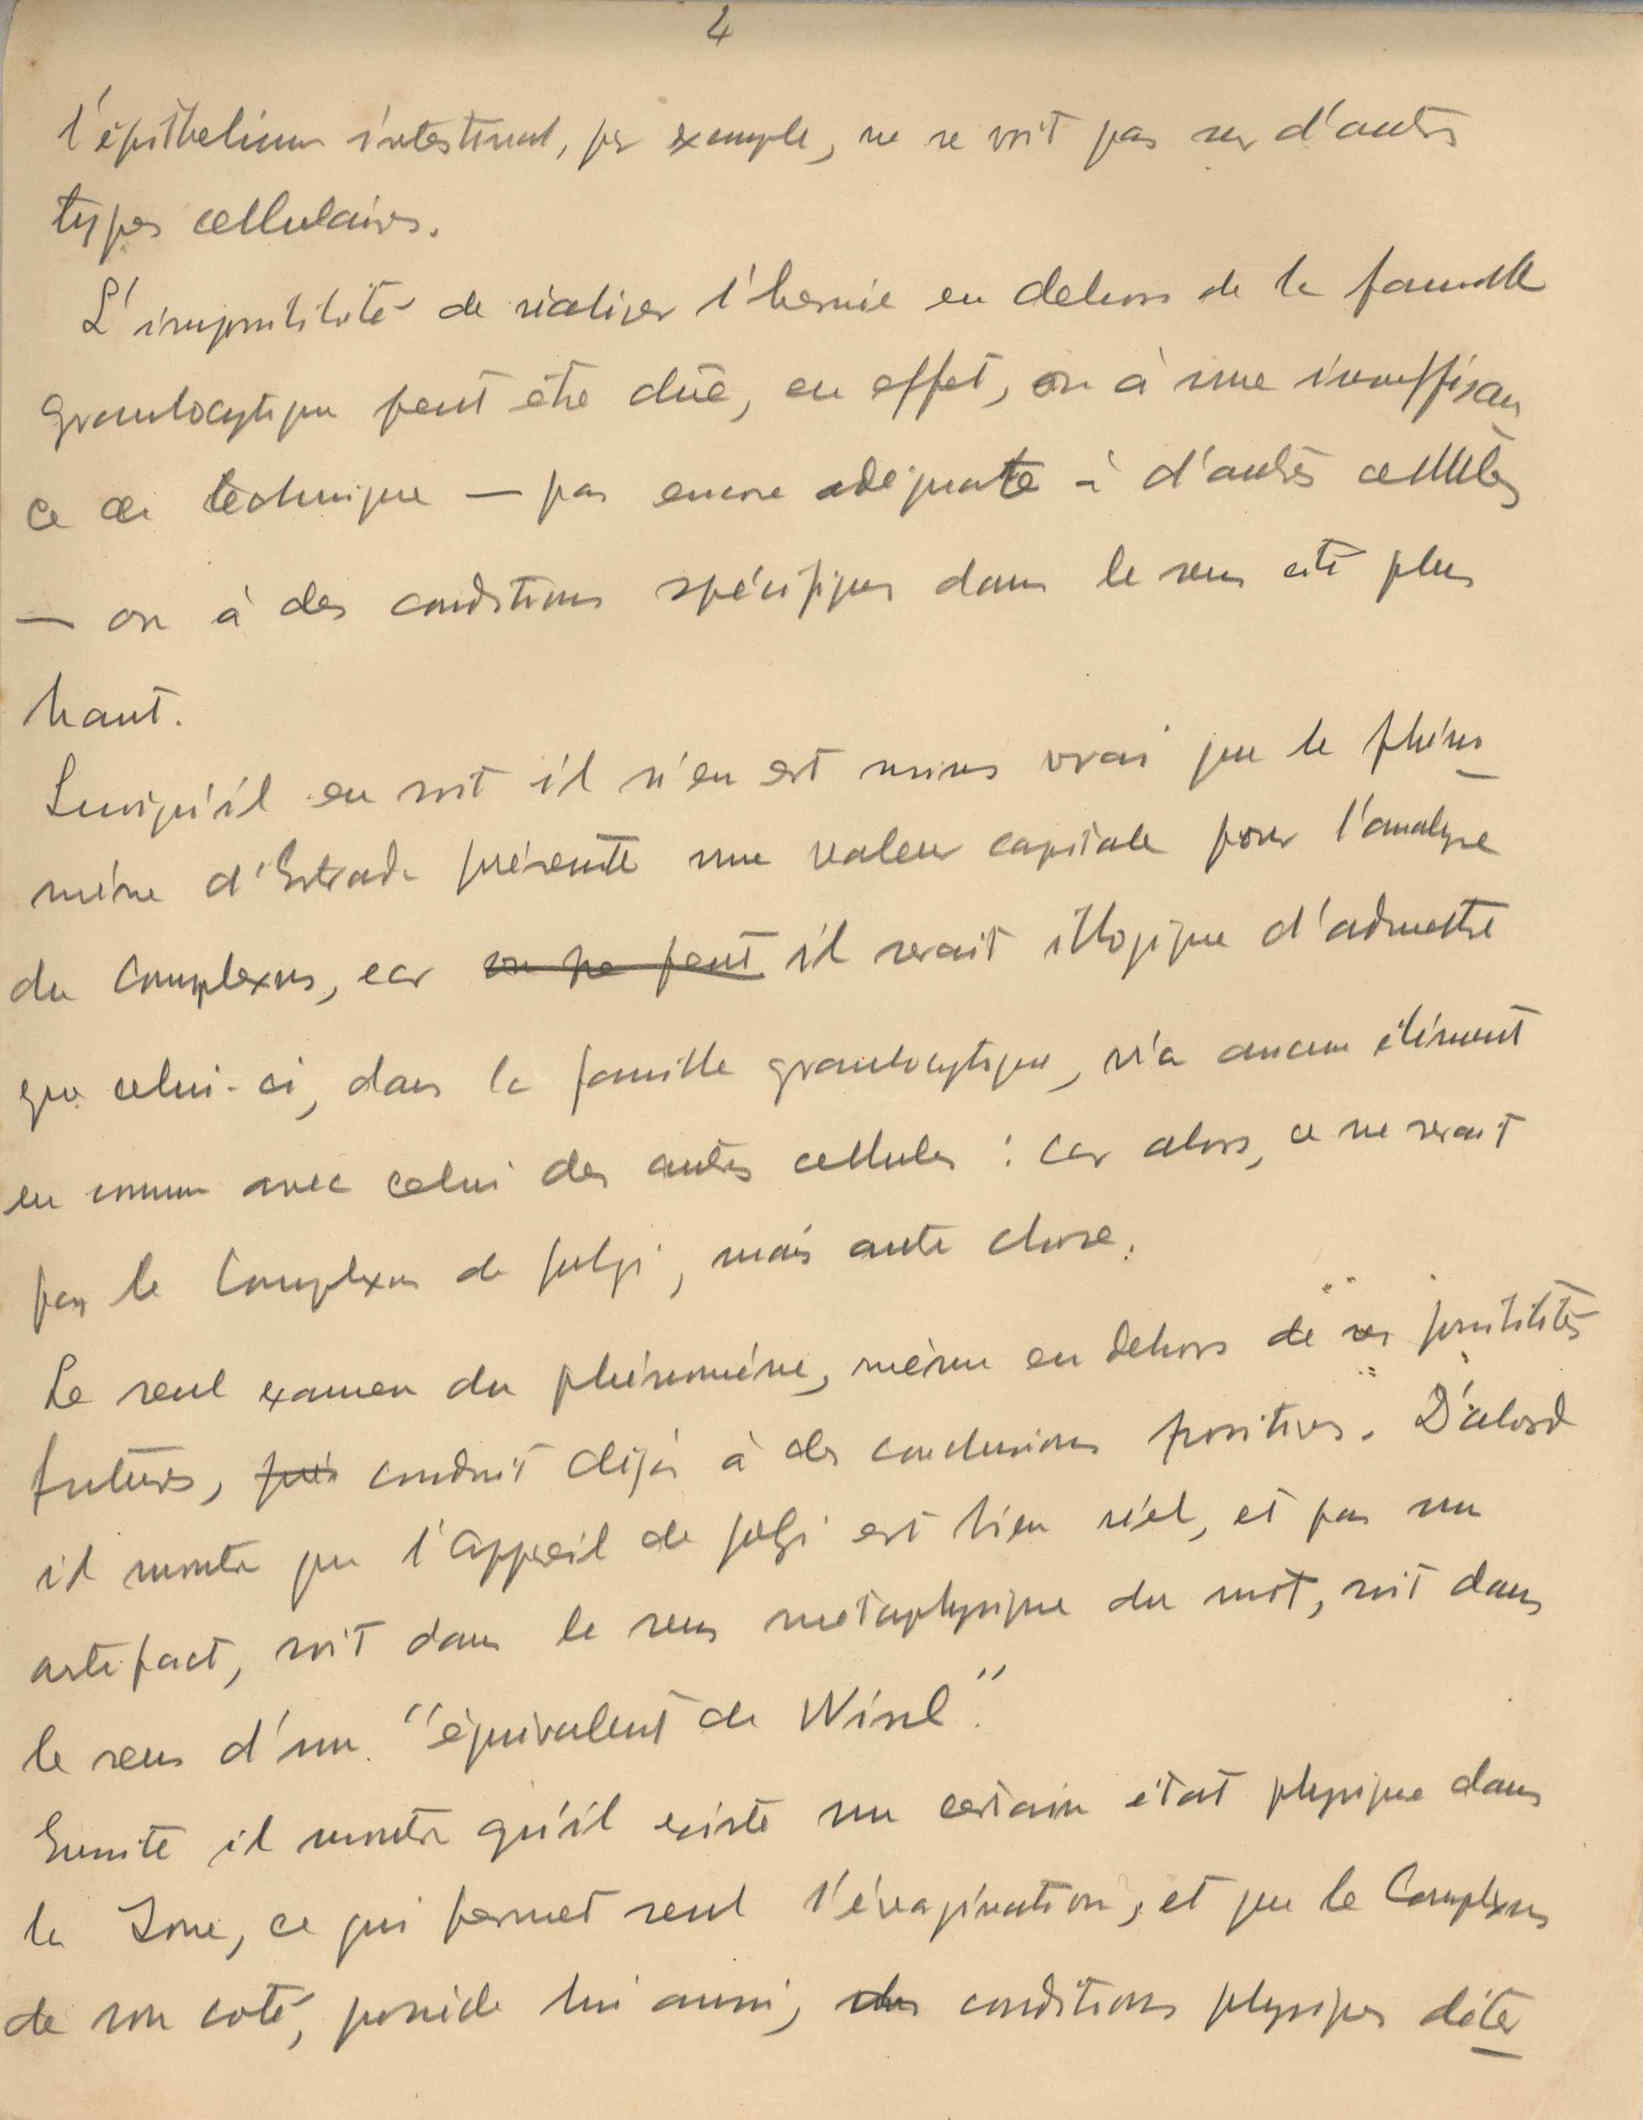 4
l'épithelium intestinal, par exemple, ne se voit pas sur d'autres
types cellulaires.
L'impossibilité de réaliser l'hernie en dehors de la famille
granulocytique peut être dûe, en effet, ou à une insuffisan
ce de technique — pas encore adéquate à d'autres cellules
— ou à des conditions spécifiques dans le sens cité plus
haut.
Quoiqu'il en soit il n'en est moins vrai que le phéno
mène d'Estrada présente une valeur capitale pour l'analyse
du Complexus, car on ne peut il serait illogique d'admettre
que celui-ci, dans la famille granulocytique, n'a aucun élément
en commun avec celui des autres cellules : car alors, ce ne serait
pas le Complexus de Golgi, mais autre chose.
Le seul examen du phénomène, même en dehors de ses possibilités
futures, conduit déjà à des conclusions positives. D'abord
il montre que l'appareil de Golgi est bien réel, et pas un
artefact, soit dans le sens metaphysique du mot, soit dans
le sens d'un "équivalent de Nissl".
Ensuite il montre qu'il existe un certain état physique dans
la Zone, ce qui permet seul l'évagination, et que le Complexus
de son coté, posséde lui aussi, des conditions physiques déter